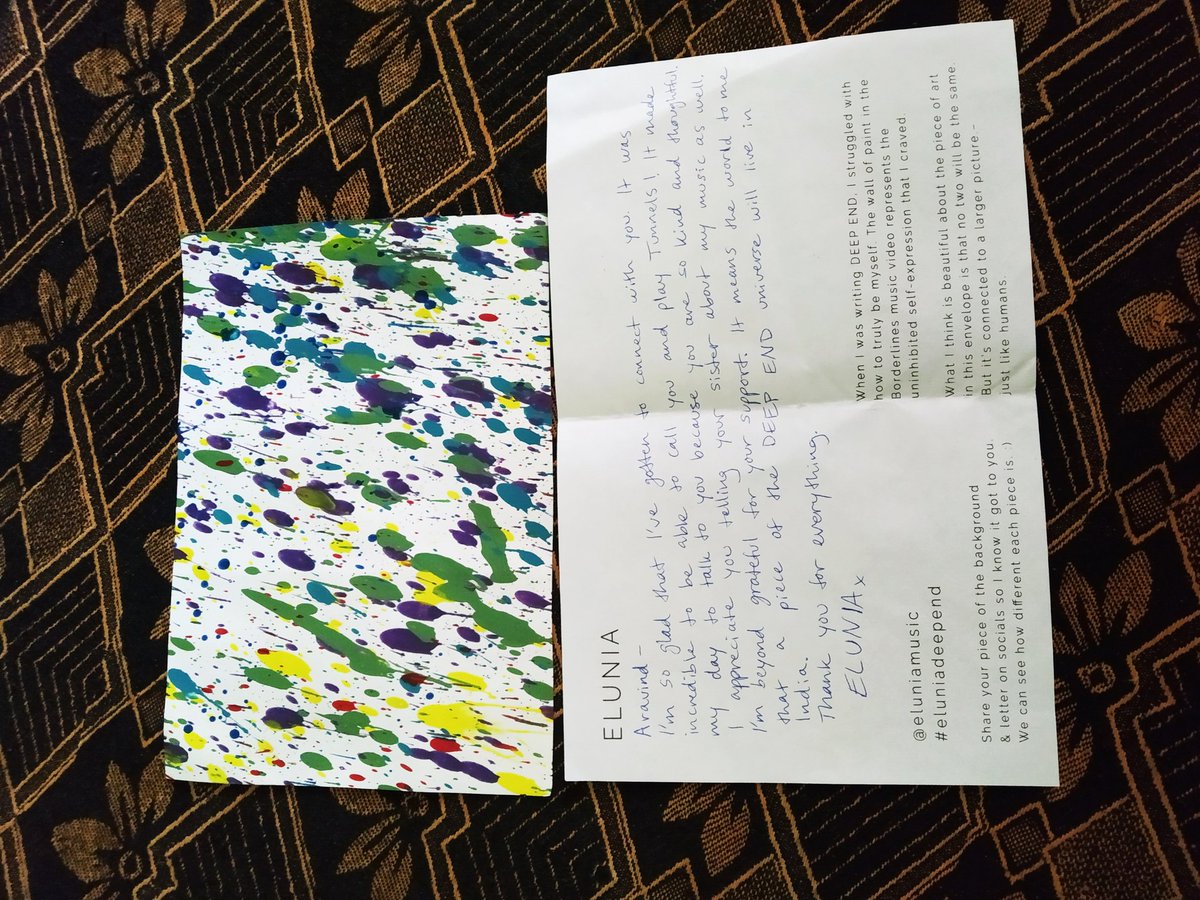 ELUNIA
Aravind-
I'm so glad that I've gotten to connect with you. It was
incredible to be able to call you and play Tunnels! It made
my day to talk to you because you are so kind and thoughtful.
I appreciate you telling your sister about my music as well.
I'm beyond grateful for your support. It means the world to me
that a piece of the DEEP END universe will live in
India.
Thank you for everything.
ELUNIA x
@eluniamusic
#eluniadeepend
Share your piece of the background
& letter on socials so I know it got to you.
We can see how different each piece is. :)
When I was writing DEEP END, I struggled with
how to truly be myself. The wall of paint in the
Borderlines music video represents the
uninhibited self-expression that I craved.
What I think is beautiful about the piece of art
in this envelope is that no two will be the same.
But it's connected to a larger picture -
just like humans.